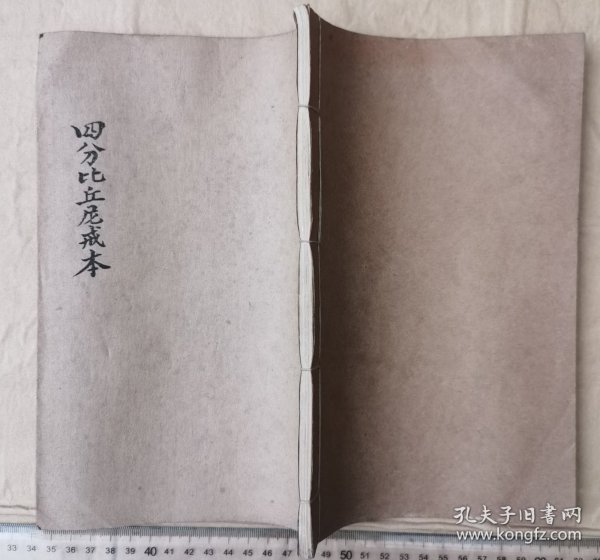 四分比丘尼戒本
孔夫子旧书网
www.kongfz.com
33 34 35 36 37 38 39 40 41 42 43 44 45 46 47 50 51 52 53 54 55 56 57 58